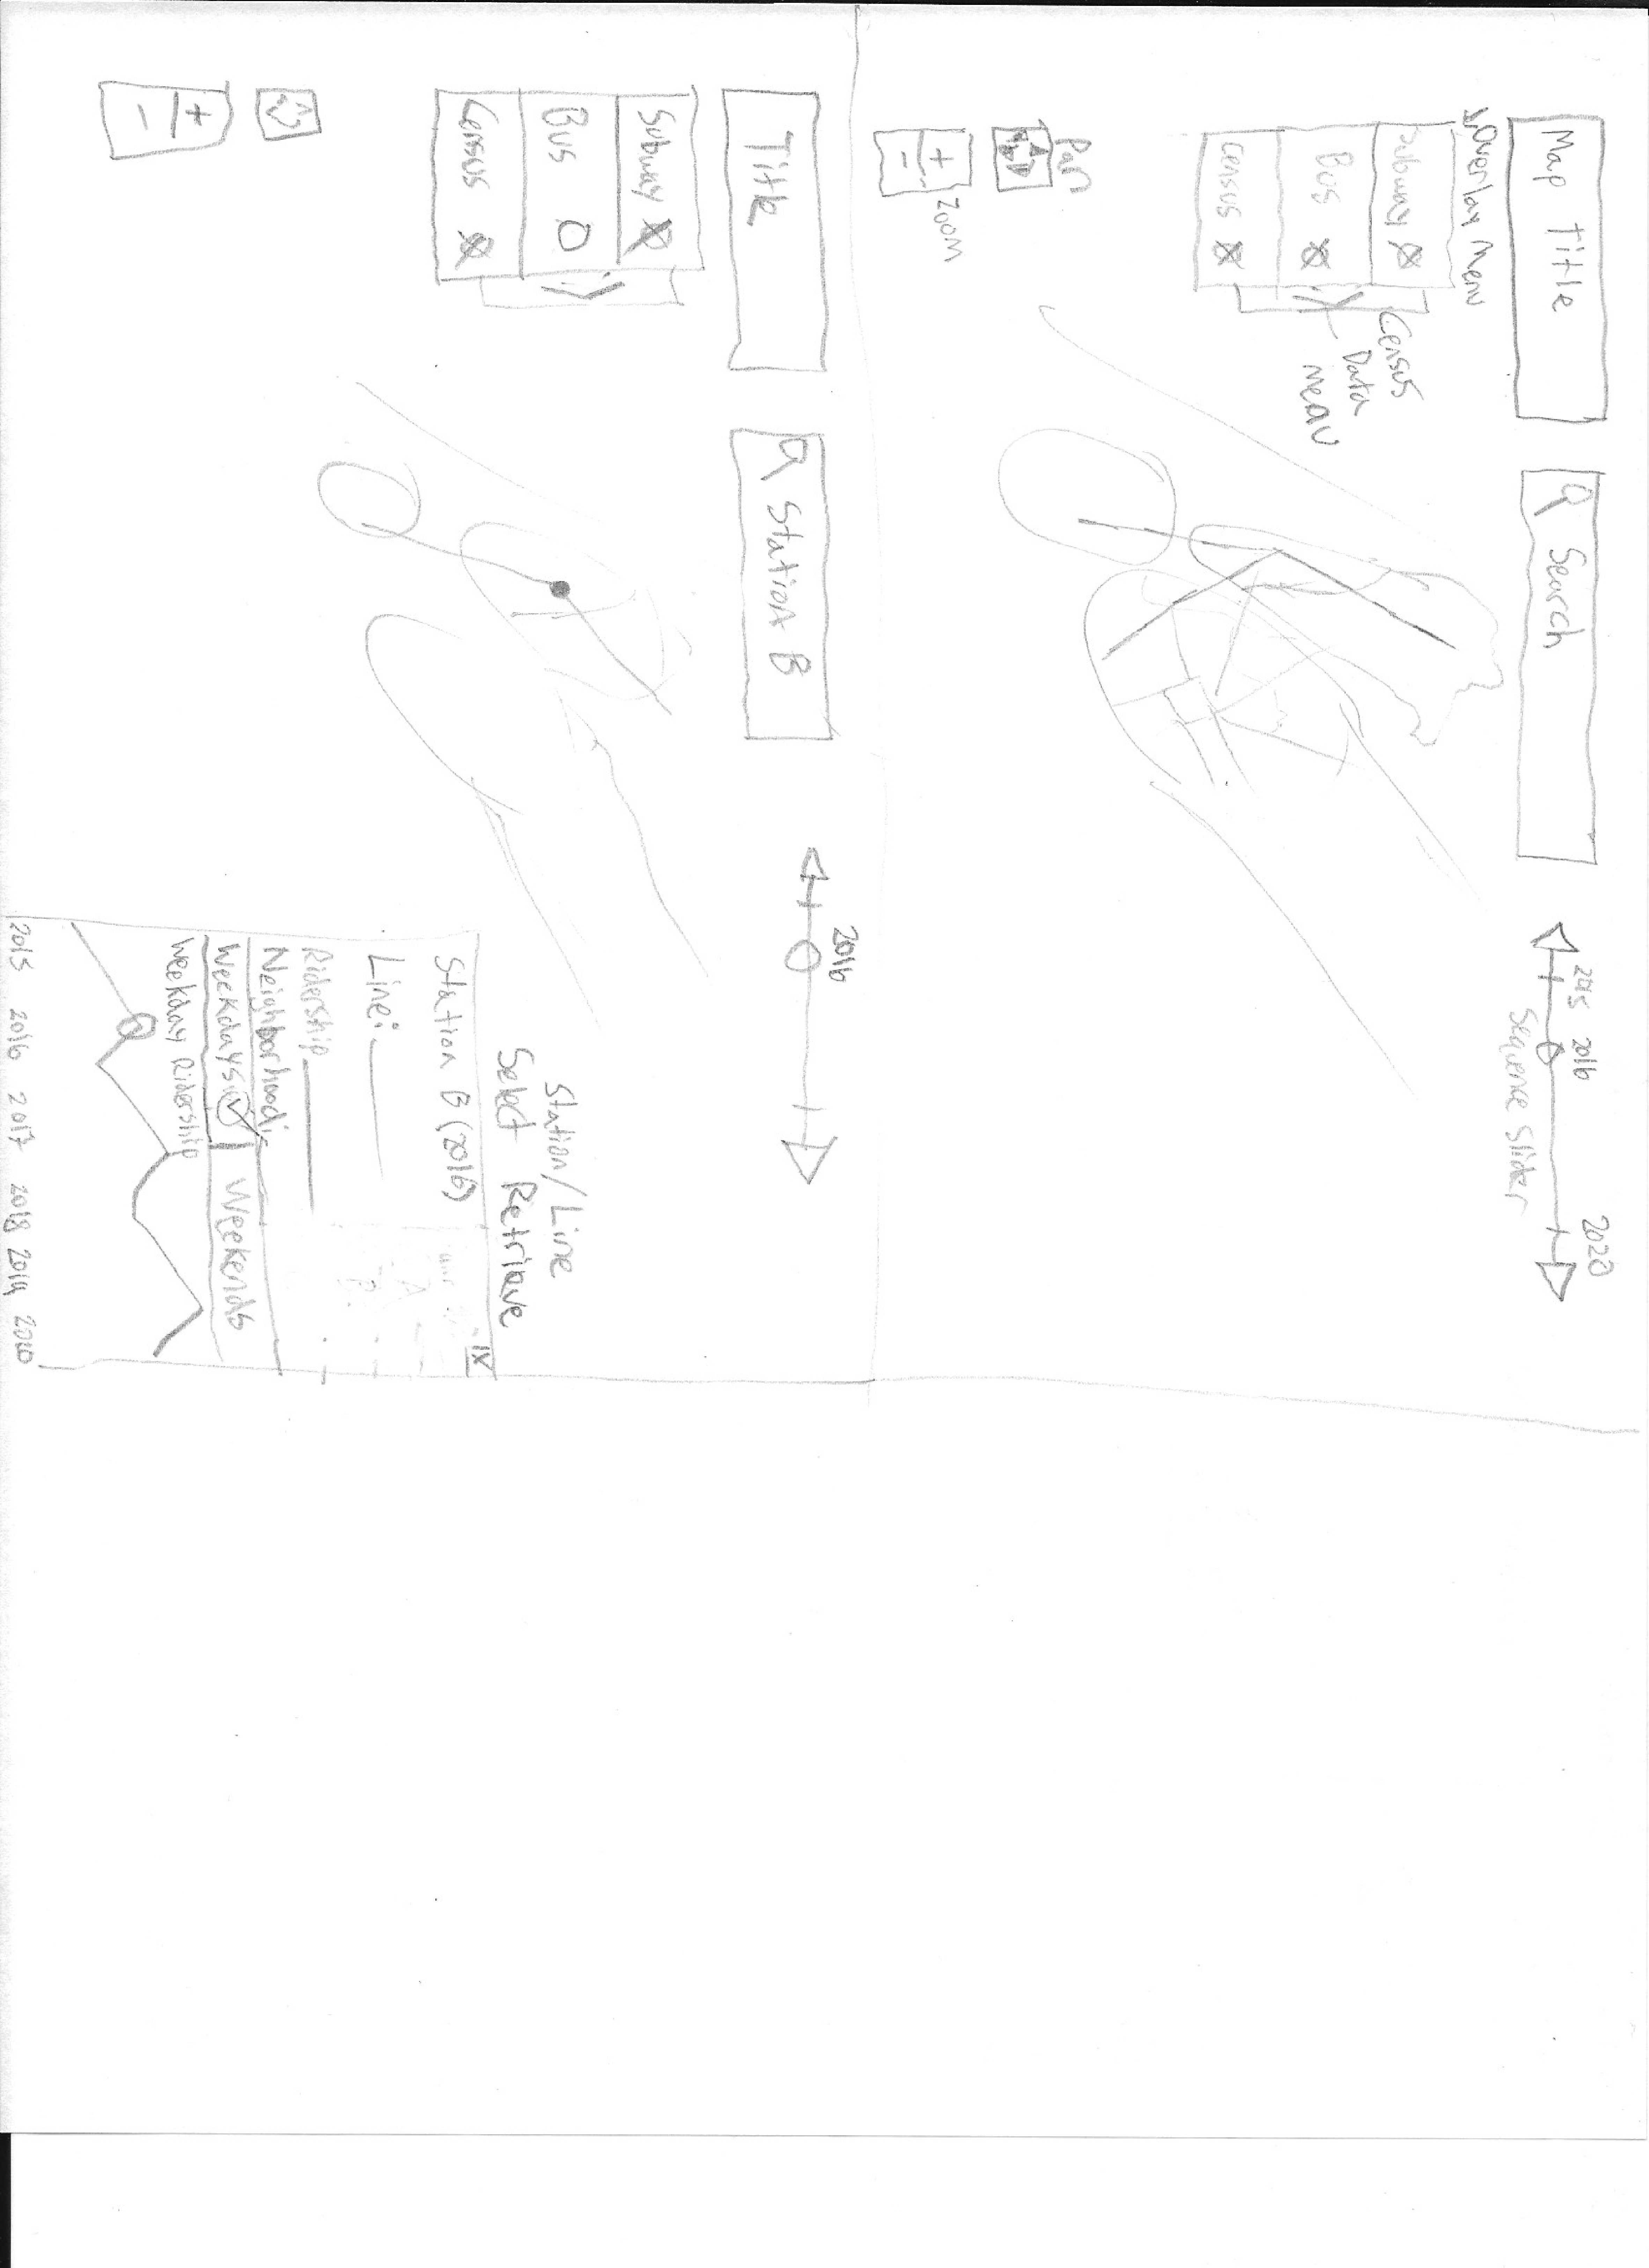 Map Title
Search
2015 2016 2020
Sequence Slider
Overlay Menu
Subway
Bus
Census
Census
Data
Menu
Pan
+ Zoom
-
2016
Title
Station B
Subway
Bus
Census
+
-
Station/Line
Select Retrieve
X
Station B (2016)
A
B
Line:
Ridership
Neighborhood:
Weekdays Weekends
Weekday Ridership
2015 2016 2017 2018 2019 2020